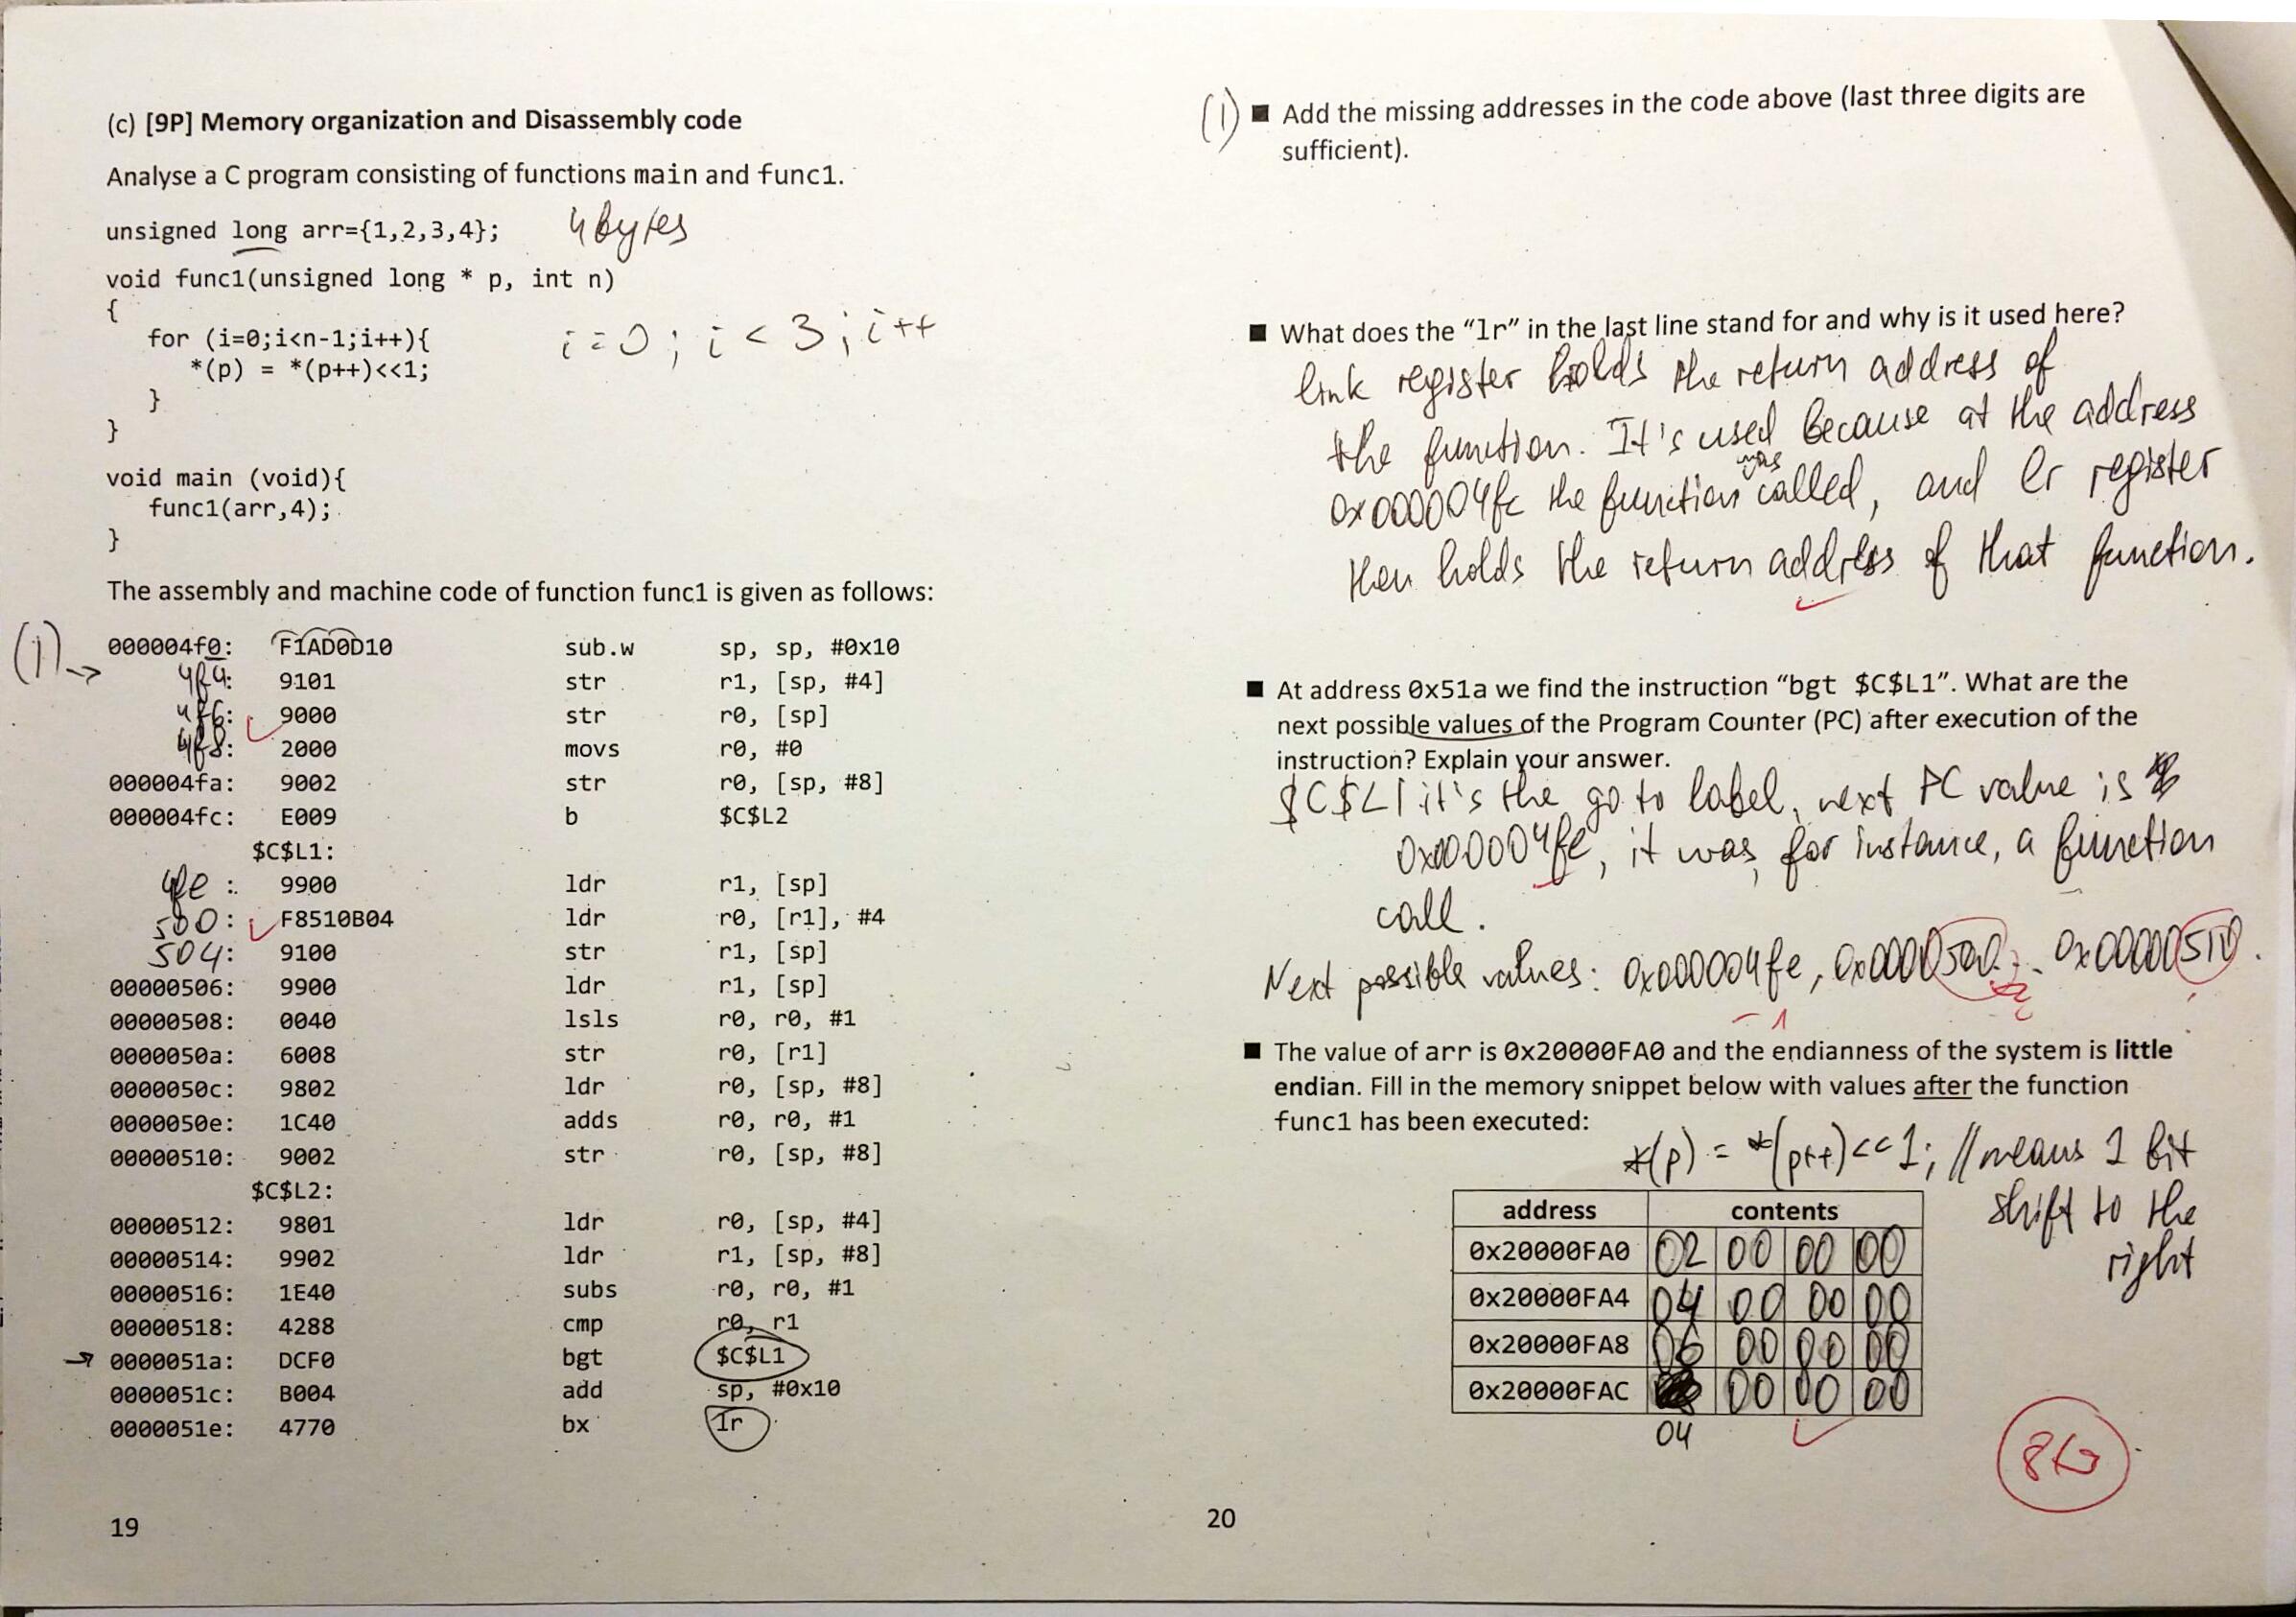 (c) [9P] Memory organization and Disassembly code
Analyse a C program consisting of functions main and func1.
unsigned long arr={1,2,3,4}; 4 bytes
void func1(unsigned long * p, int n)
{
for (i=0;i<n-1;i++){ i=0; i<3; i++
*(p) = *(p++)<<1;
}
}
void main (void){
func1(arr,4);
}
The assembly and machine code of function func1 is given as follows:
(1)→ 000004f0: F1AD0D10 sub.w sp, sp, #0x10
4f4: 9101 str r1, [sp, #4]
4f6: 9000 str r0, [sp]
4f8: 2000 movs r0, #0
000004fa: 9002 str r0, [sp, #8]
000004fc: E009 b $C$L2
$C$L1:
4fe : 9900 ldr r1, [sp]
500: F8510B04 ldr r0, [r1], #4
504: 9100 str r1, [sp]
00000506: 9900 ldr r1, [sp]
00000508: 0040 lsls r0, r0, #1
0000050a: 6008 str r0, [r1]
0000050c: 9802 ldr r0, [sp, #8]
0000050e: 1C40 adds r0, r0, #1
00000510: 9002 str r0, [sp, #8]
$C$L2:
00000512: 9801 ldr r0, [sp, #4]
00000514: 9902 ldr r1, [sp, #8]
00000516: 1E40 subs r0, r0, #1
00000518: 4288 cmp r0, r1
→ 0000051a: DCF0 bgt $C$L1
0000051c: B004 add sp, #0x10
0000051e: 4770 bx lr
19
(1) ■ Add the missing addresses in the code above (last three digits are
sufficient).
■ What does the "lr" in the last line stand for and why is it used here?
link register holds the return address of
the function. It's used because at the address
0x000004fc the function was called, and lr register
then holds the return address of that function.
■ At address 0x51a we find the instruction "bgt $C$L1". What are the
next possible values of the Program Counter (PC) after execution of the
instruction? Explain your answer.
$C$L1 it's the go to label, next PC value is
0x000004fe, it was, for instance, a function
call.
Next possible values: 0x000004fe, 0x0000500 .. 0x00000510.
-1
■ The value of arr is 0x20000FA0 and the endianness of the system is little
endian. Fill in the memory snippet below with values after the function
func1 has been executed:
*(p) = *(p++)<<1; //means 1 bit
shift to the
right
address contents
0x20000FA0 02 00 00 00
0x20000FA4 04 00 00 00
0x20000FA8 06 00 00 00
0x20000FAC 00 00 00
04
20